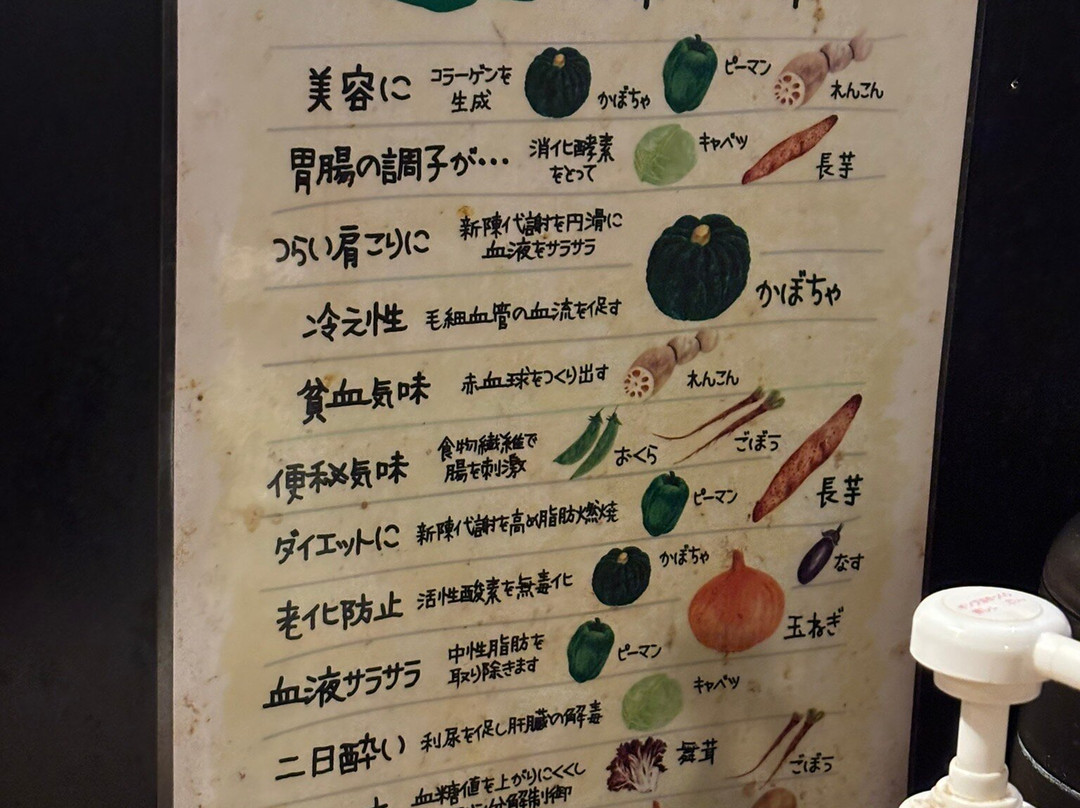 美容に コラーゲンを
生成 かぼちゃ ピーマン れんこん
胃腸の調子が… 消化酵素
をとって キャベツ 長芋
つらい肩こりに 新陳代謝を円滑に
血液をサラサラ
かぼちゃ
冷え性 毛細血管の血流を促す
貧血気味 赤血球をつくり出す れんこん
便秘気味 食物繊維で
腸を刺激 おくら ごぼう 長芋
ダイエットに 新陳代謝を高め脂肪燃焼 ピーマン
老化防止 活性酸素を無毒化 かぼちゃ なす
玉ねぎ
血液サラサラ 中性脂肪を
取り除きます ピーマン
二日酔い 利尿を促し肝臓の解毒 キャベツ
血糖値を上がりにくくし
分解制御 舞茸 ごぼう